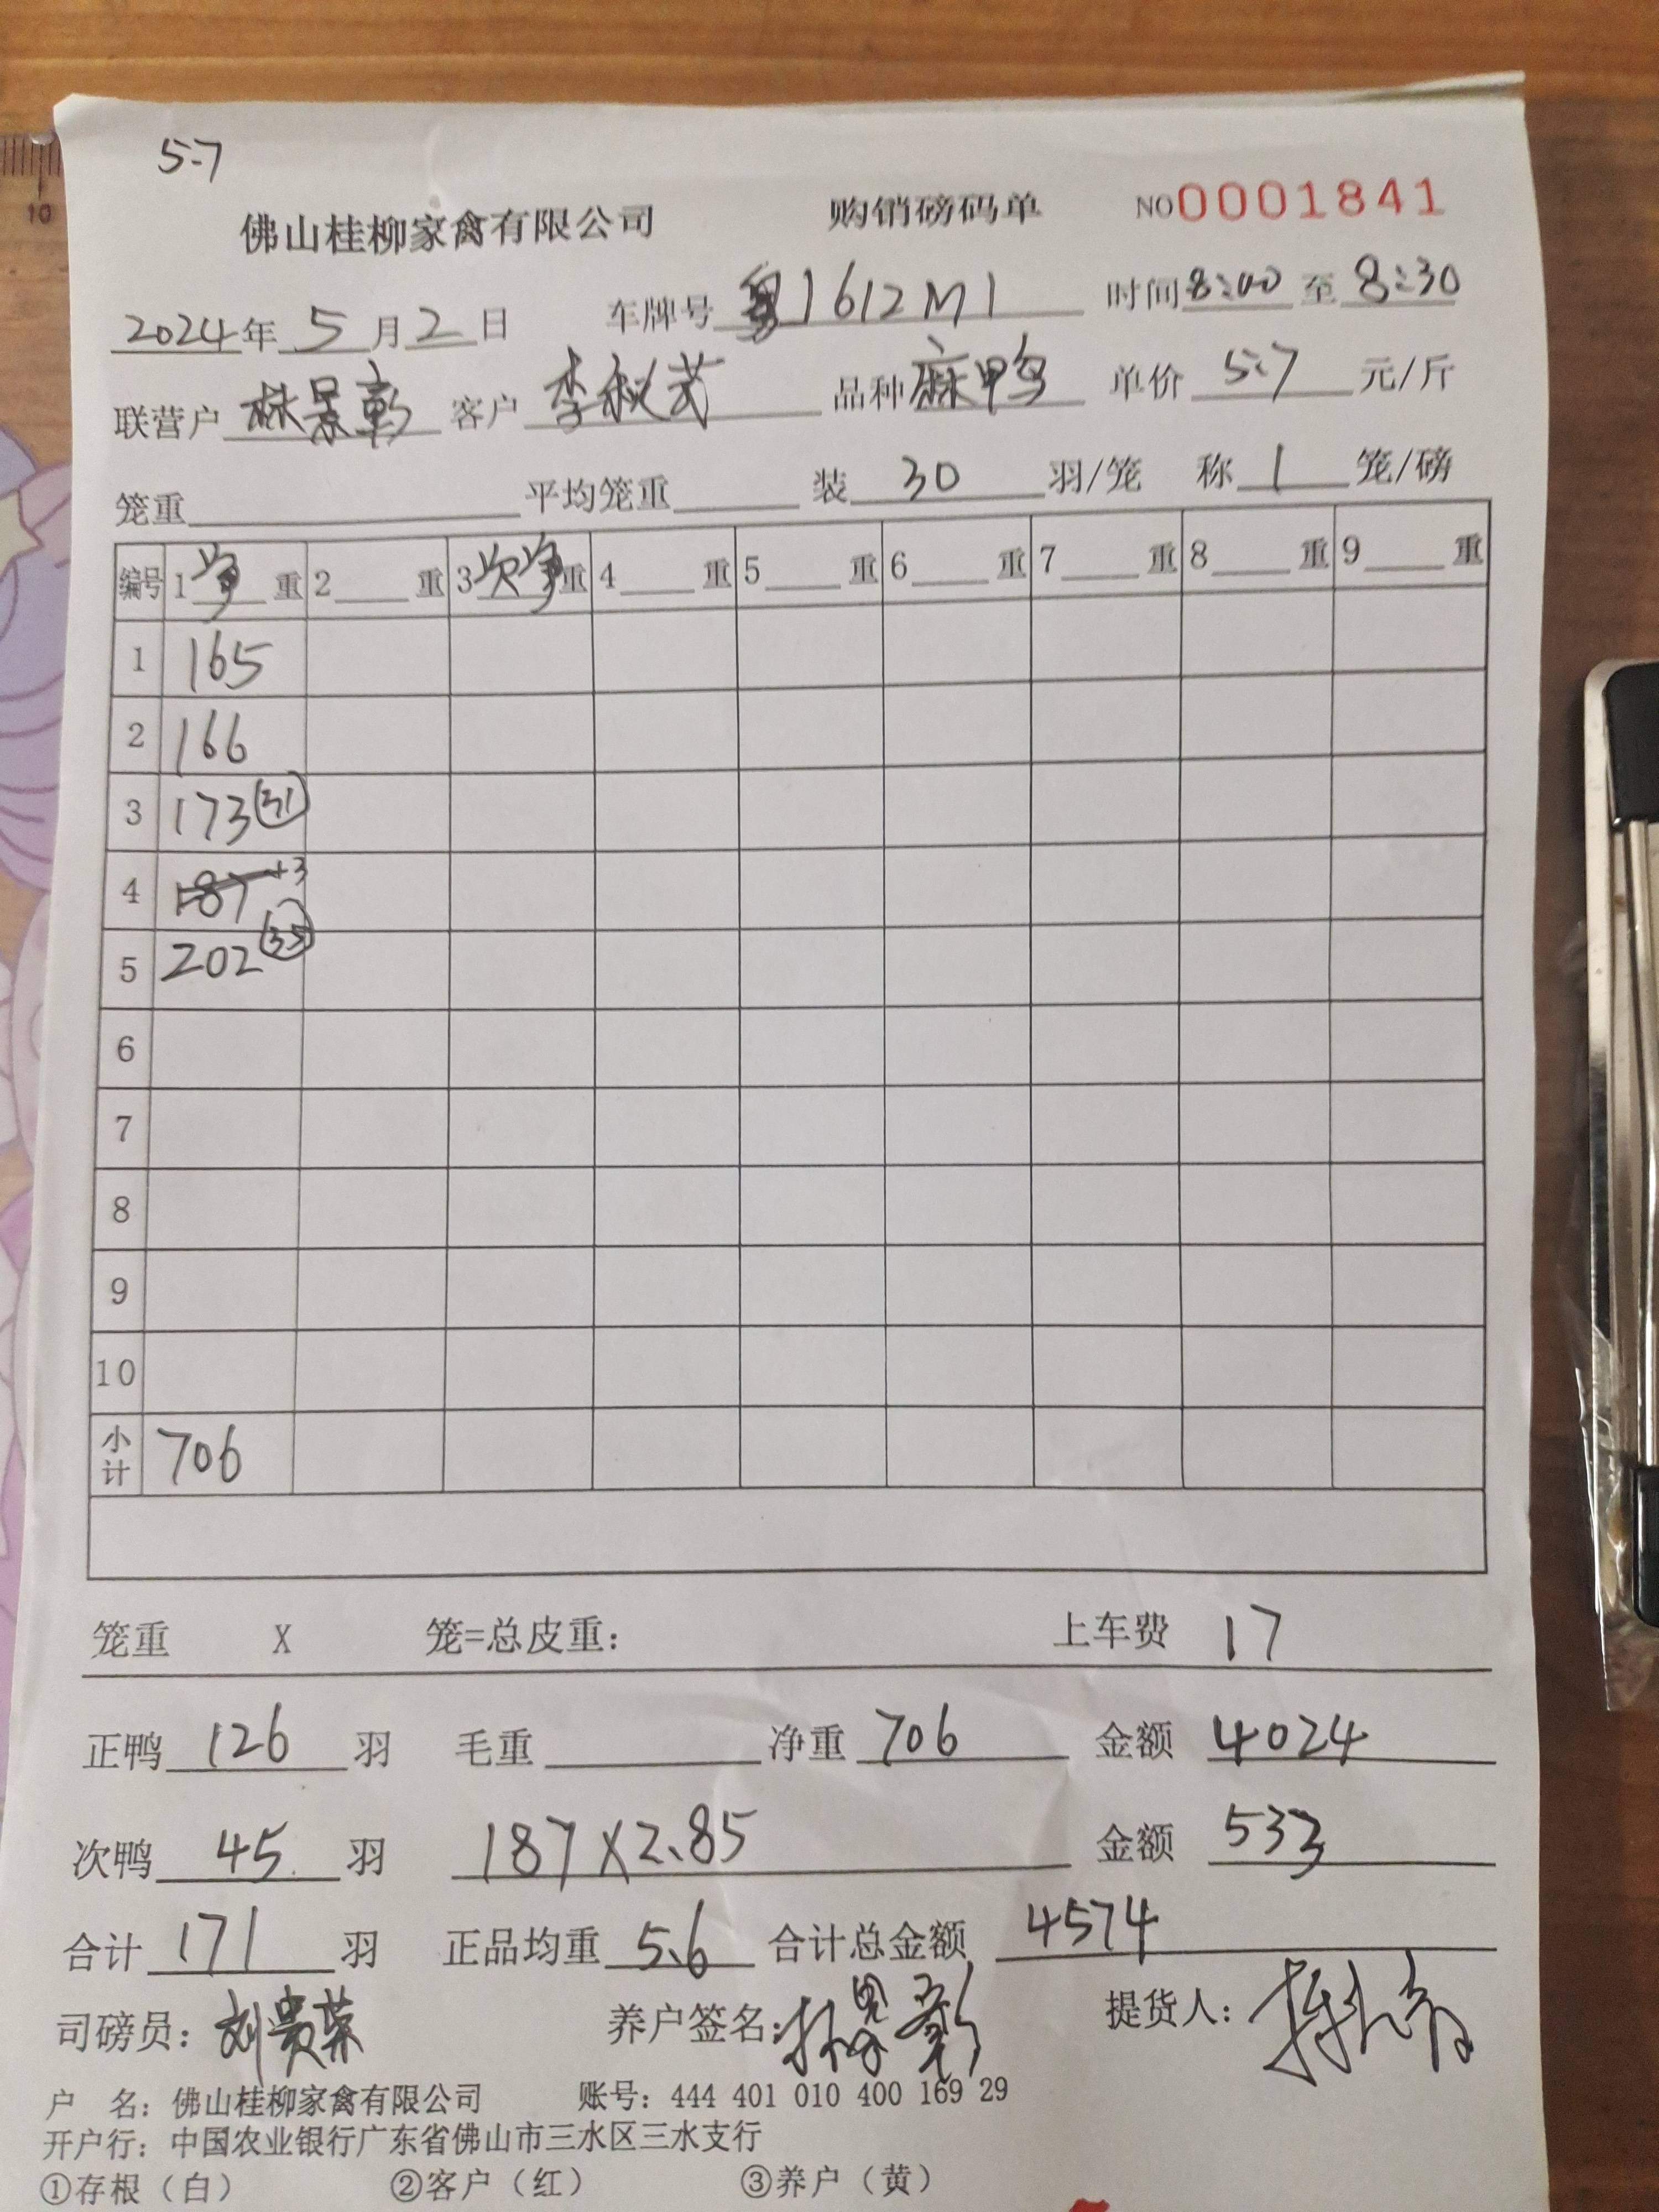 5.7
佛山桂柳家禽有限公司 购销磅码单 NO 0001841
2024年 5月 2日 车牌号 粤1612M1 时间 8:00 至 8:30
联营户 林景彰 客户 李秋芳 品种 麻鸭 单价 5.7 元/斤
笼重 平均笼重 装 30 羽/笼 称 1 笼/磅
编号 1 净 重 2 重 3 次净 重 4 重 5 重 6 重 7 重 8 重 9 重
1 165
2 166
3 173 (31)
4 187 +3
5 202 (35)
6
7
8
9
10
小计 706
笼重 X 笼=总皮重: 上车费 17
正鸭 126 羽 毛重 净重 706 金额 4024
次鸭 45 羽 187×2.85 金额 533
合计 171 羽 正品均重 5.6 合计总金额 4574
司磅员: 刘贵荣 养户签名: 林景彰 提货人:
户 名: 佛山桂柳家禽有限公司 账号: 444 401 010 400 169 29
开户行: 中国农业银行广东省佛山市三水区三水支行
①存根(白) ②客户(红) ③养户(黄)
10